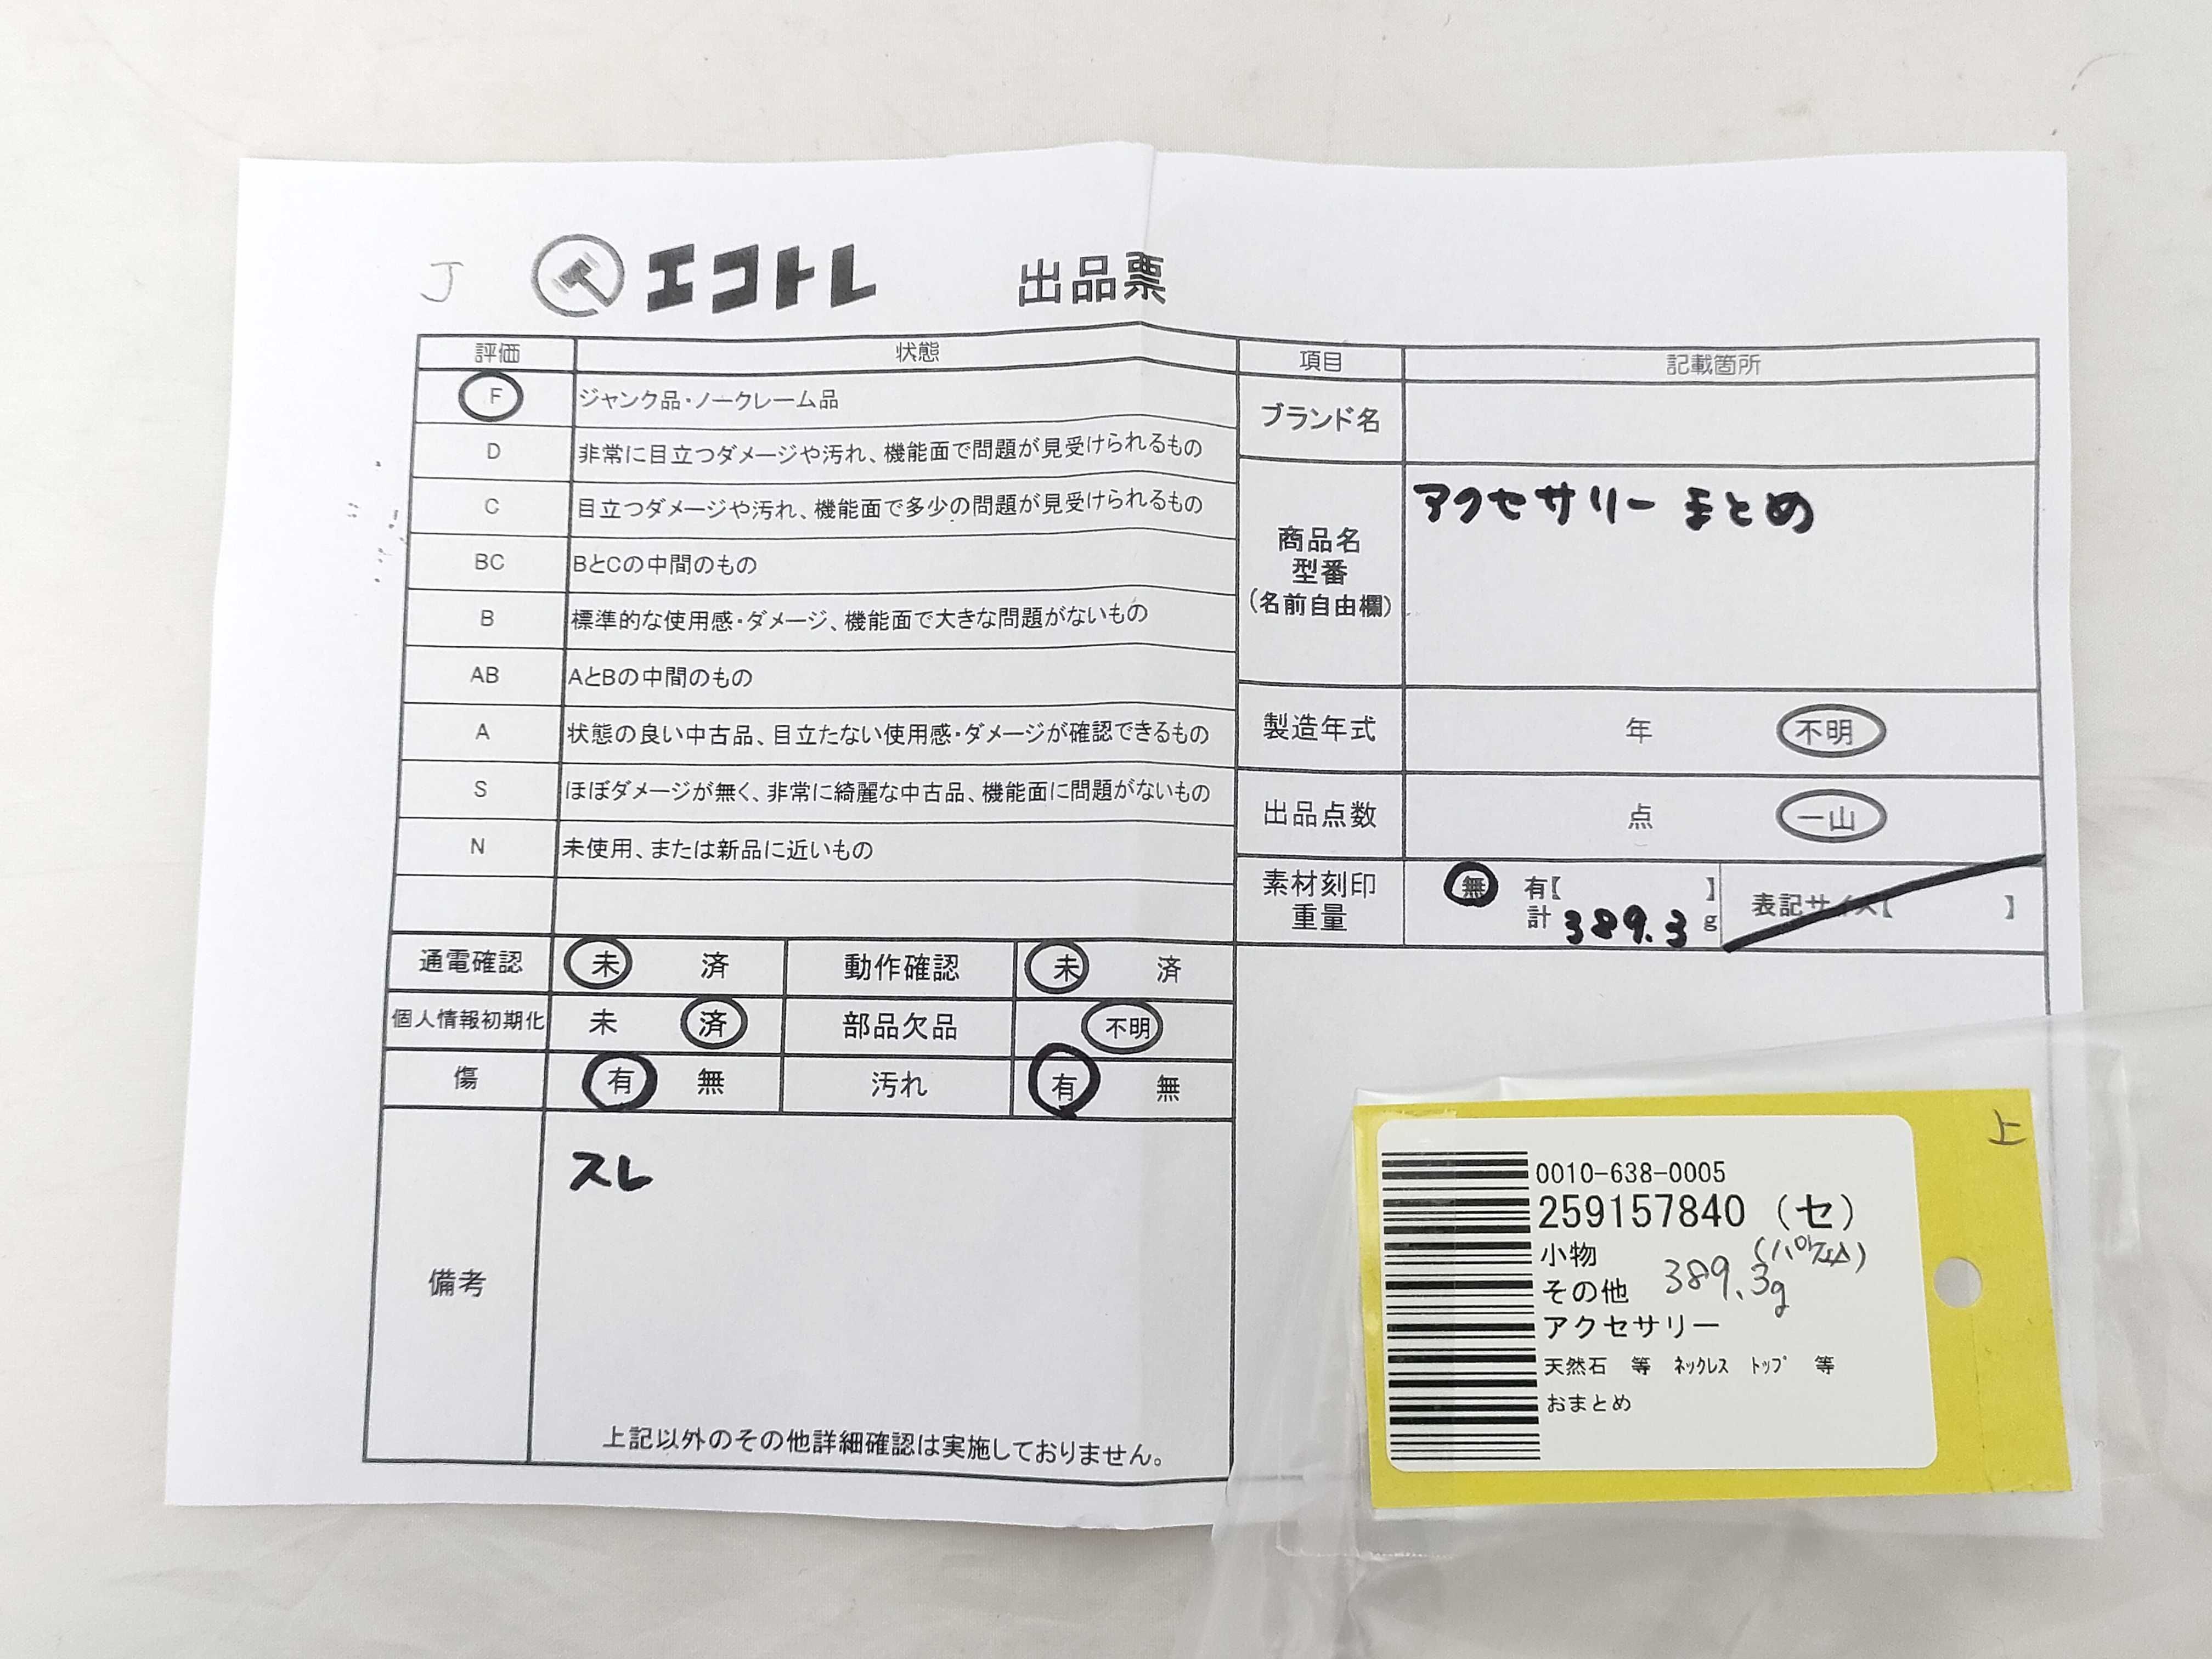 J エコトレ 出品票
評価 状態
F ジャンク品・ノークレーム品
D 非常に目立つダメージや汚れ、機能面で問題が見受けられるもの
C 目立つダメージや汚れ、機能面で多少の問題が見受けられるもの
BC BとCの中間のもの
B 標準的な使用感・ダメージ、機能面で大きな問題がないもの
AB AとBの中間のもの
A 状態の良い中古品、目立たない使用感・ダメージが確認できるもの
S ほぼダメージが無く、非常に綺麗な中古品、機能面に問題がないもの
N 未使用、または新品に近いもの
通電確認 未 済 動作確認 未 済
個人情報初期化 未 済 部品欠品 不明
傷 有 無 汚れ 有 無
備考
スレ
上記以外のその他詳細確認は実施しておりません。
項目 記載箇所
ブランド名
商品名
型番
(名前自由欄)
アクセサリー まとめ
製造年式 年 不明
出品点数 点 一山
素材刻印
重量
無 有【 】
計 389.3 g
表記サイズ【 】
上
0010-638-0005
259157840 (セ)
小物
その他 389.3g
アクセサリー
天然石 等 ネックレス トップ 等
おまとめ